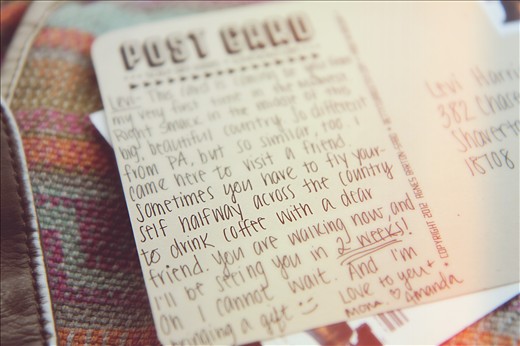 POST CARD
Levi- This card is coming to you from
my very first time in the midwest.
Right smack in the middle of this
big, beautiful country. So different
from PA, but so similar, too. I
came here to visit a friend.
Sometimes you have to fly your-
self halfway across the country
to drink coffee with a dear
friend. You are walking now, and
I'll be seeing you in 2 weeks!
Oh I cannot wait. And I'm
bringing a gift :)
Love to you +
Mama. ♡ Amanda
COPYRIGHT 2012
Levi
382
18708